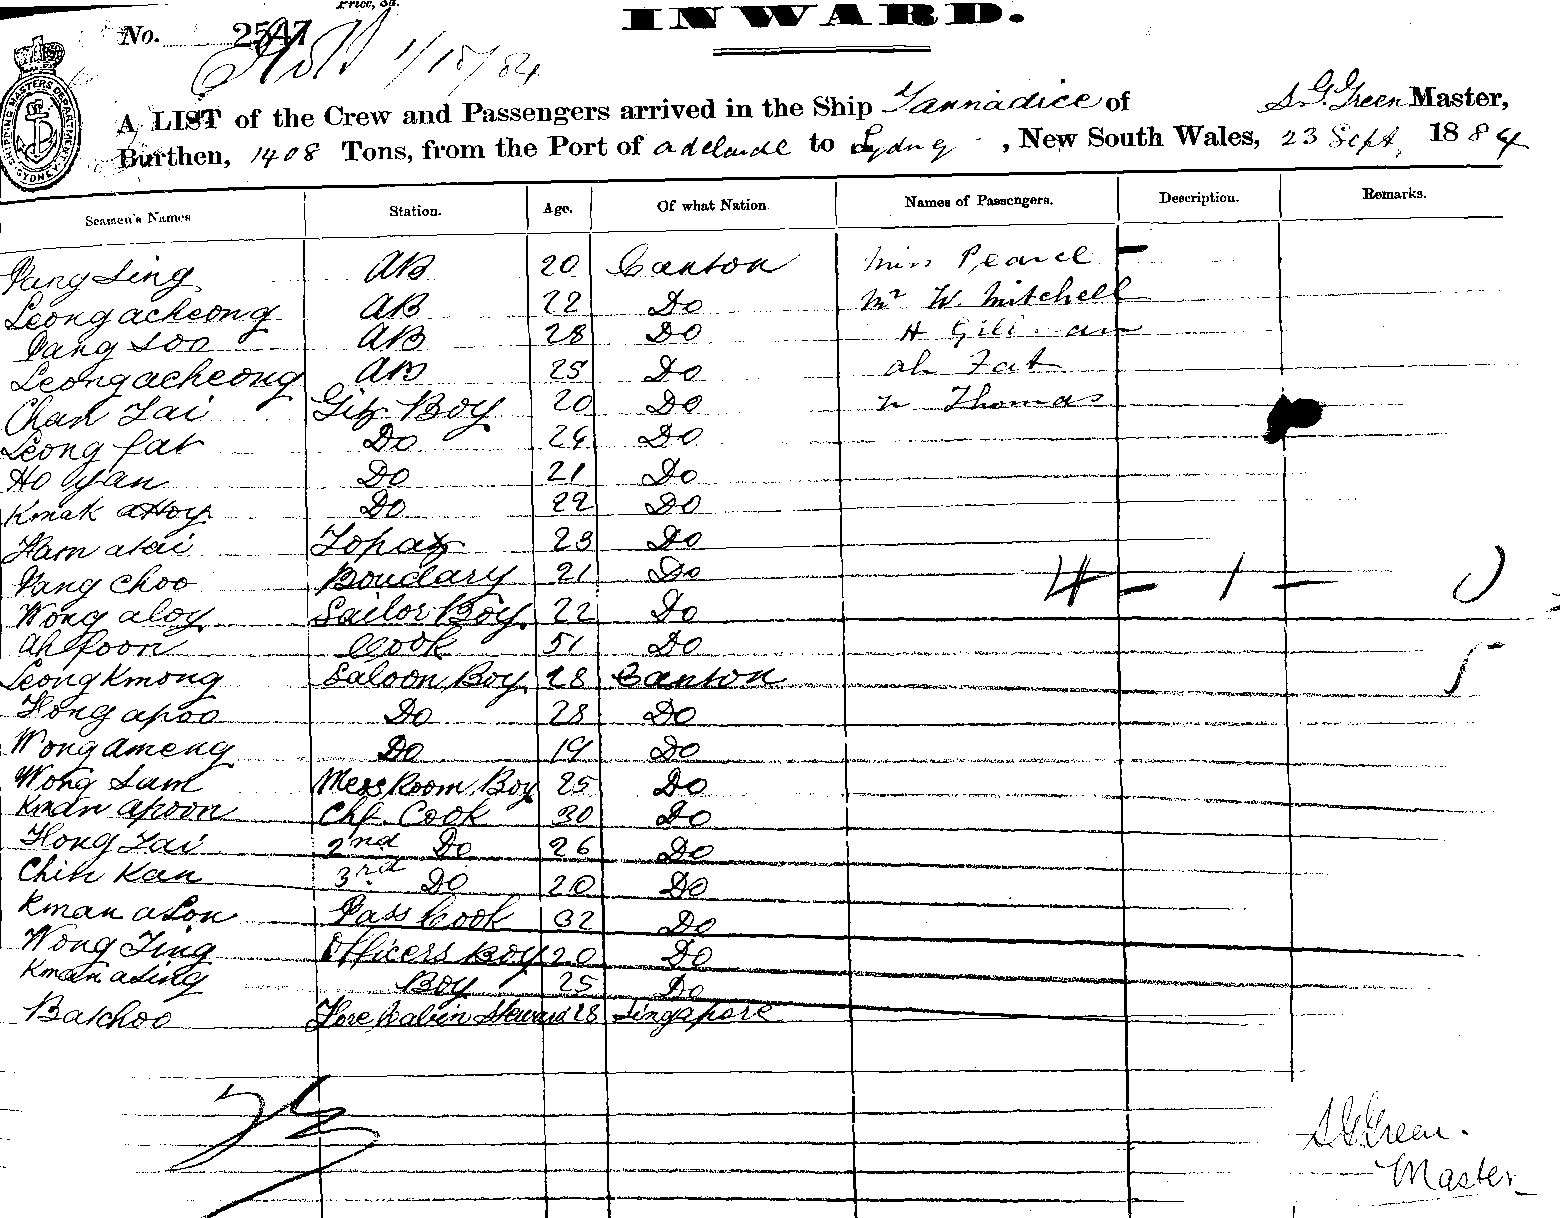 Price, 3d.
INWARD.
No. 2547
1/10/84
SHIPPING MASTERS DEPARTMENT SYDNEY
A LIST of the Crew and Passengers arrived in the Ship Tannadice of S. G. Green Master,
Burthen, 1408 Tons, from the Port of Adelaide to Sydney, New South Wales, 23 Sept, 1884
Seamen's Names Station. Age. Of what Nation Names of Passengers. Description. Remarks.
Pang Sing AB 20 Canton Miss Pearce
Leong acheong AB 22 Do Mr W. Mitchell
Pang Soo AB 28 Do H
Leong acheong AB 25 Do ah Fat
Chan Tai Boy 20 Do Thomas
Leong fat Do 24 Do
Ho Yan Do 21 Do
Kwak aHoy Do 22 Do
Ham atai Topaz 23 Do
Pang Choo Boudary 21 Do 4 - 1 - 0
Wong aloy Sailor Boy 22 Do
Ah foon Cook 51 Do 5
Leong Kwong Saloon Boy 28 Canton
Hong apoo Do 28 Do
Wong ameng Do 19 Do
Wong Sam Mess Room Boy 25 Do
Kwan apoon Chf. Cook 30 Do
Hong Tai 2nd Do 26 Do
Chin Kan 3rd Do 20 Do
Kwan a Son Pass Cook 32 Do
Wong Ting Officers Boy 20 Do
Kwan asing Boy 25 Do
Bakchoo Fore Cabin Steward 28 Singapore
S G Green.
Master